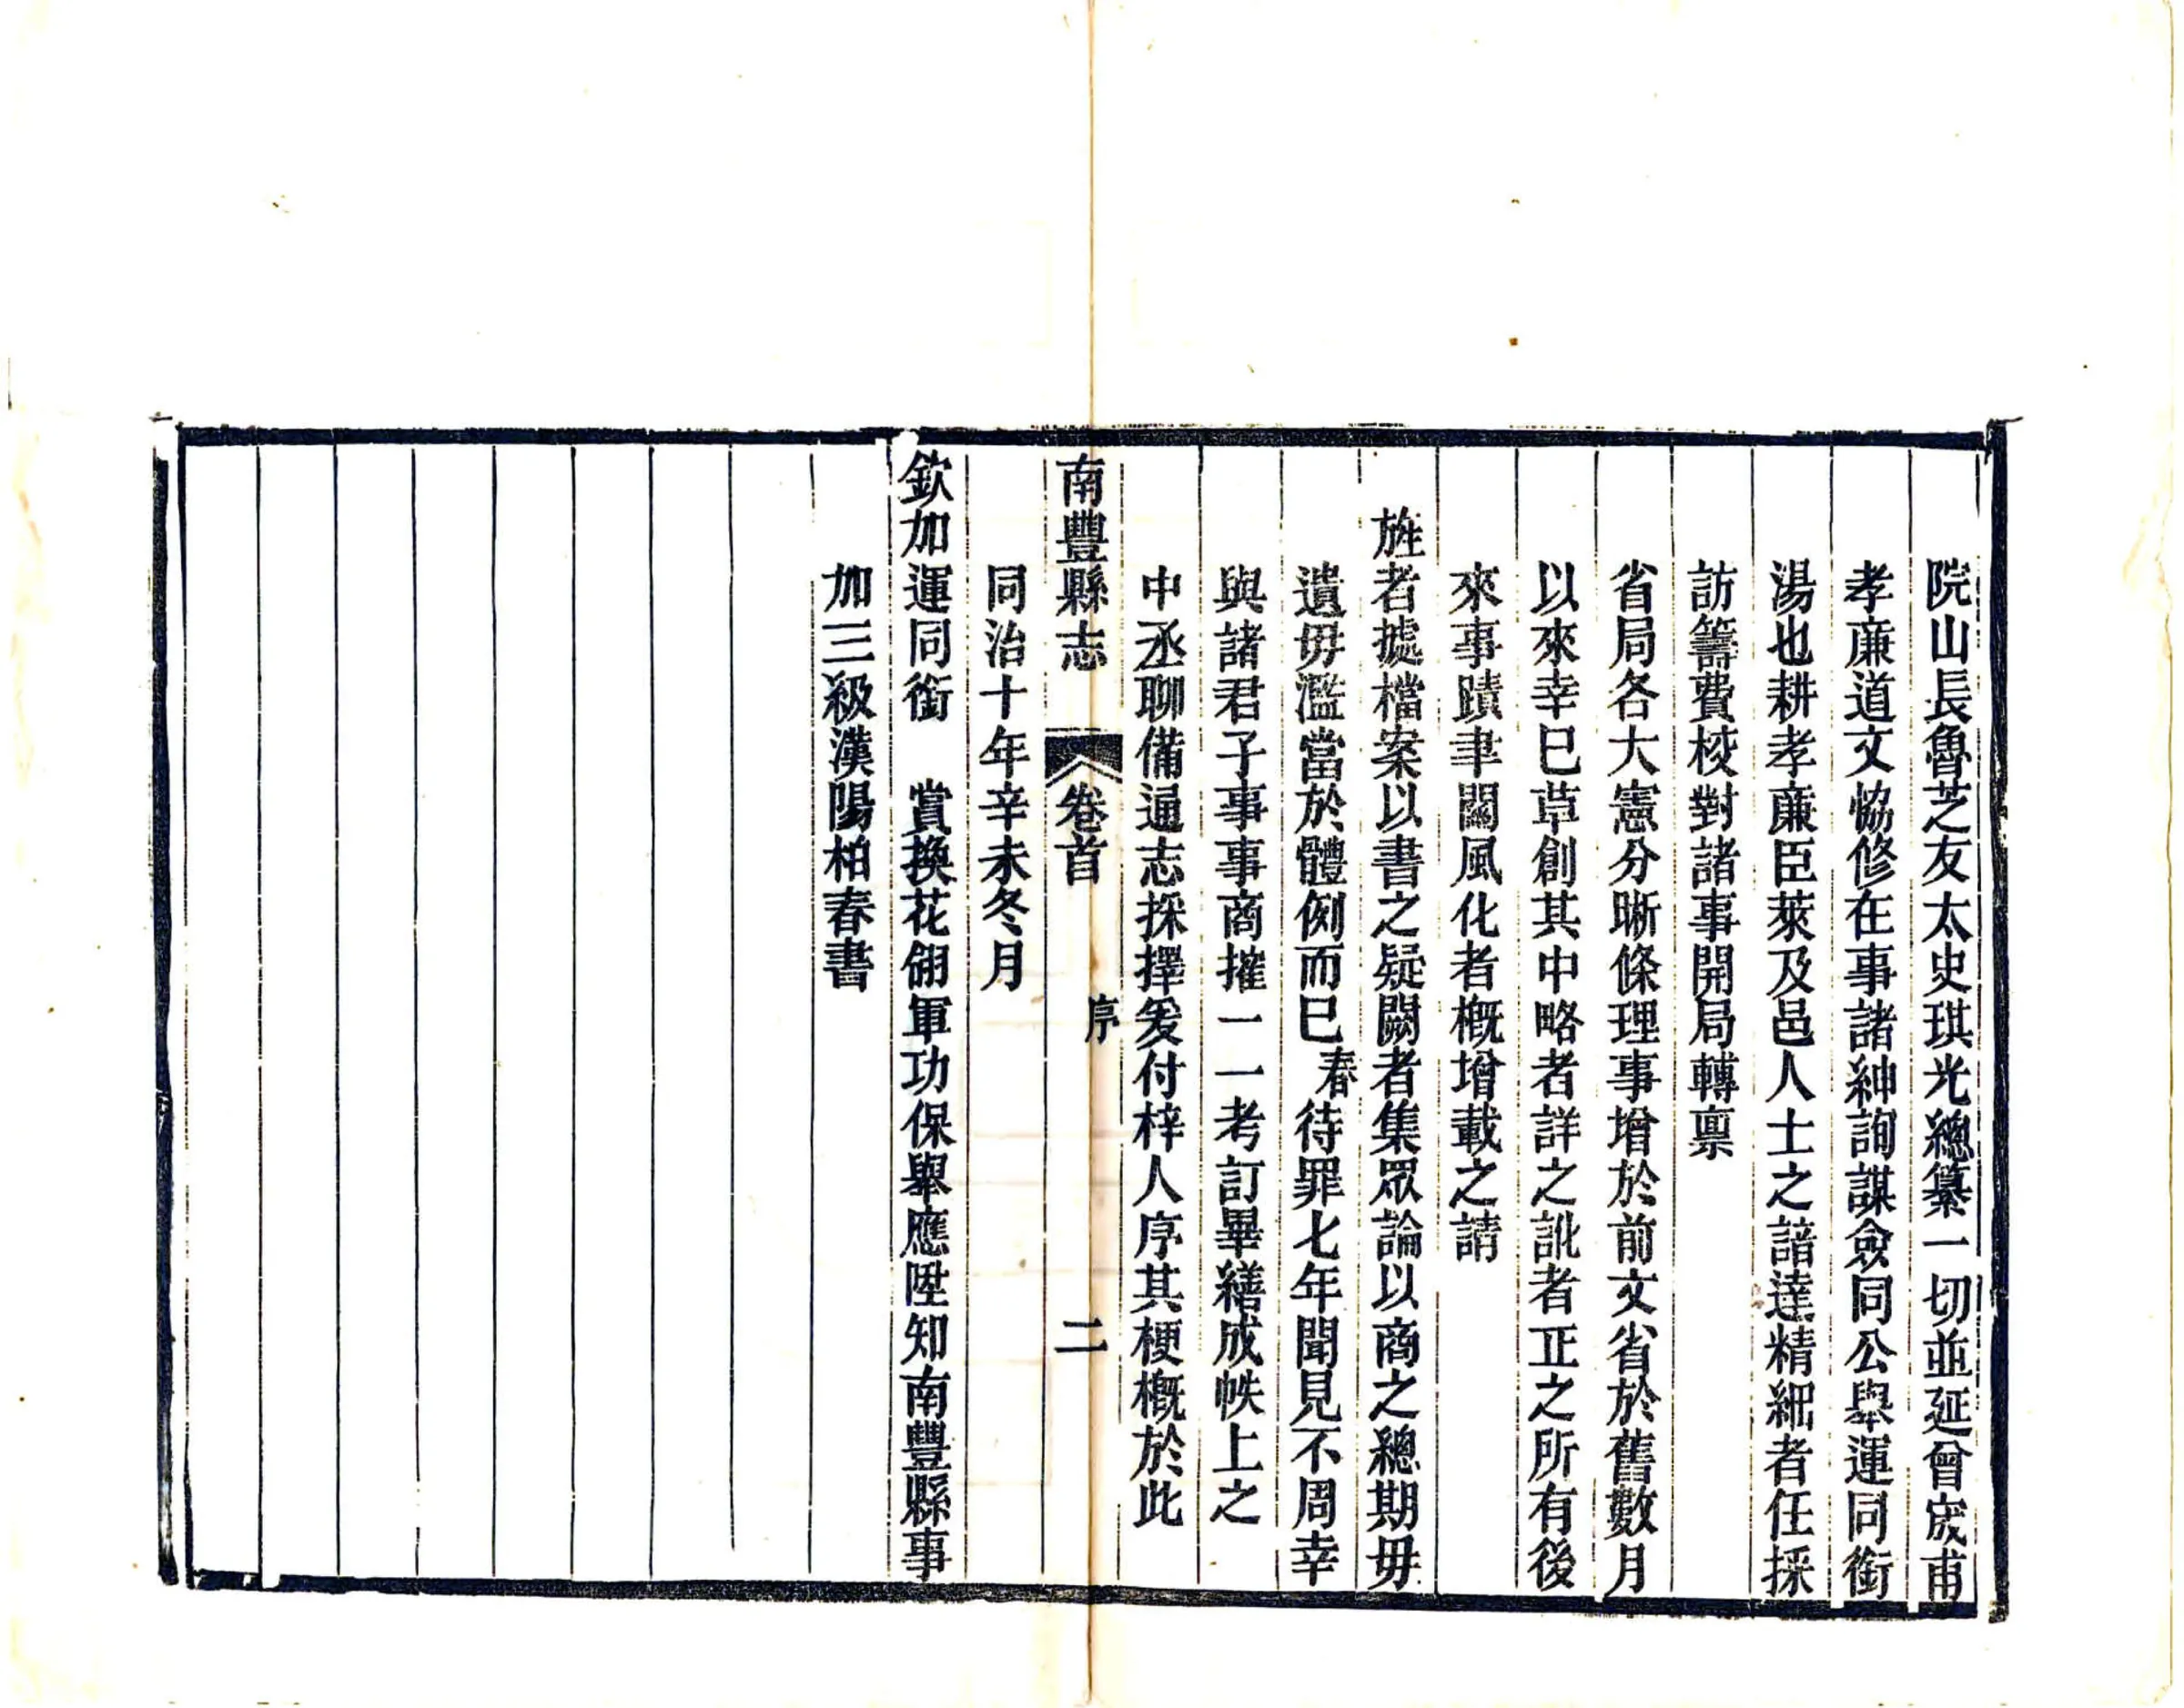 院山長魯芝友太史琪光總纂一切並延曾宬甫
孝廉道文恊修在事諸紳詢謀僉同公舉運同銜
湯也耕孝廉臣萊及邑人士之諳達精細者任採
訪籌費校對諸事開局轉禀
省局各大憲分晰條理事增於前文省於舊數月
以來幸巳草創其中略者詳之訛者正之所有後
來事蹟聿關風化者槪增載之請
旌者據檔案以書之疑闕者集眾論以商之總期毋
遺毋濫當於體例而巳春待罪七年聞見不周幸
與諸君子事事商搉一一考訂畢繕成帙上之
中丞聊備通志採擇爰付梓人序其梗槪於此
南豐縣志 卷首 序 二
同治十年辛未冬月
欽加運同銜 賞換花翎軍功保舉應陞知南豐縣事
加三級漢陽柏春書